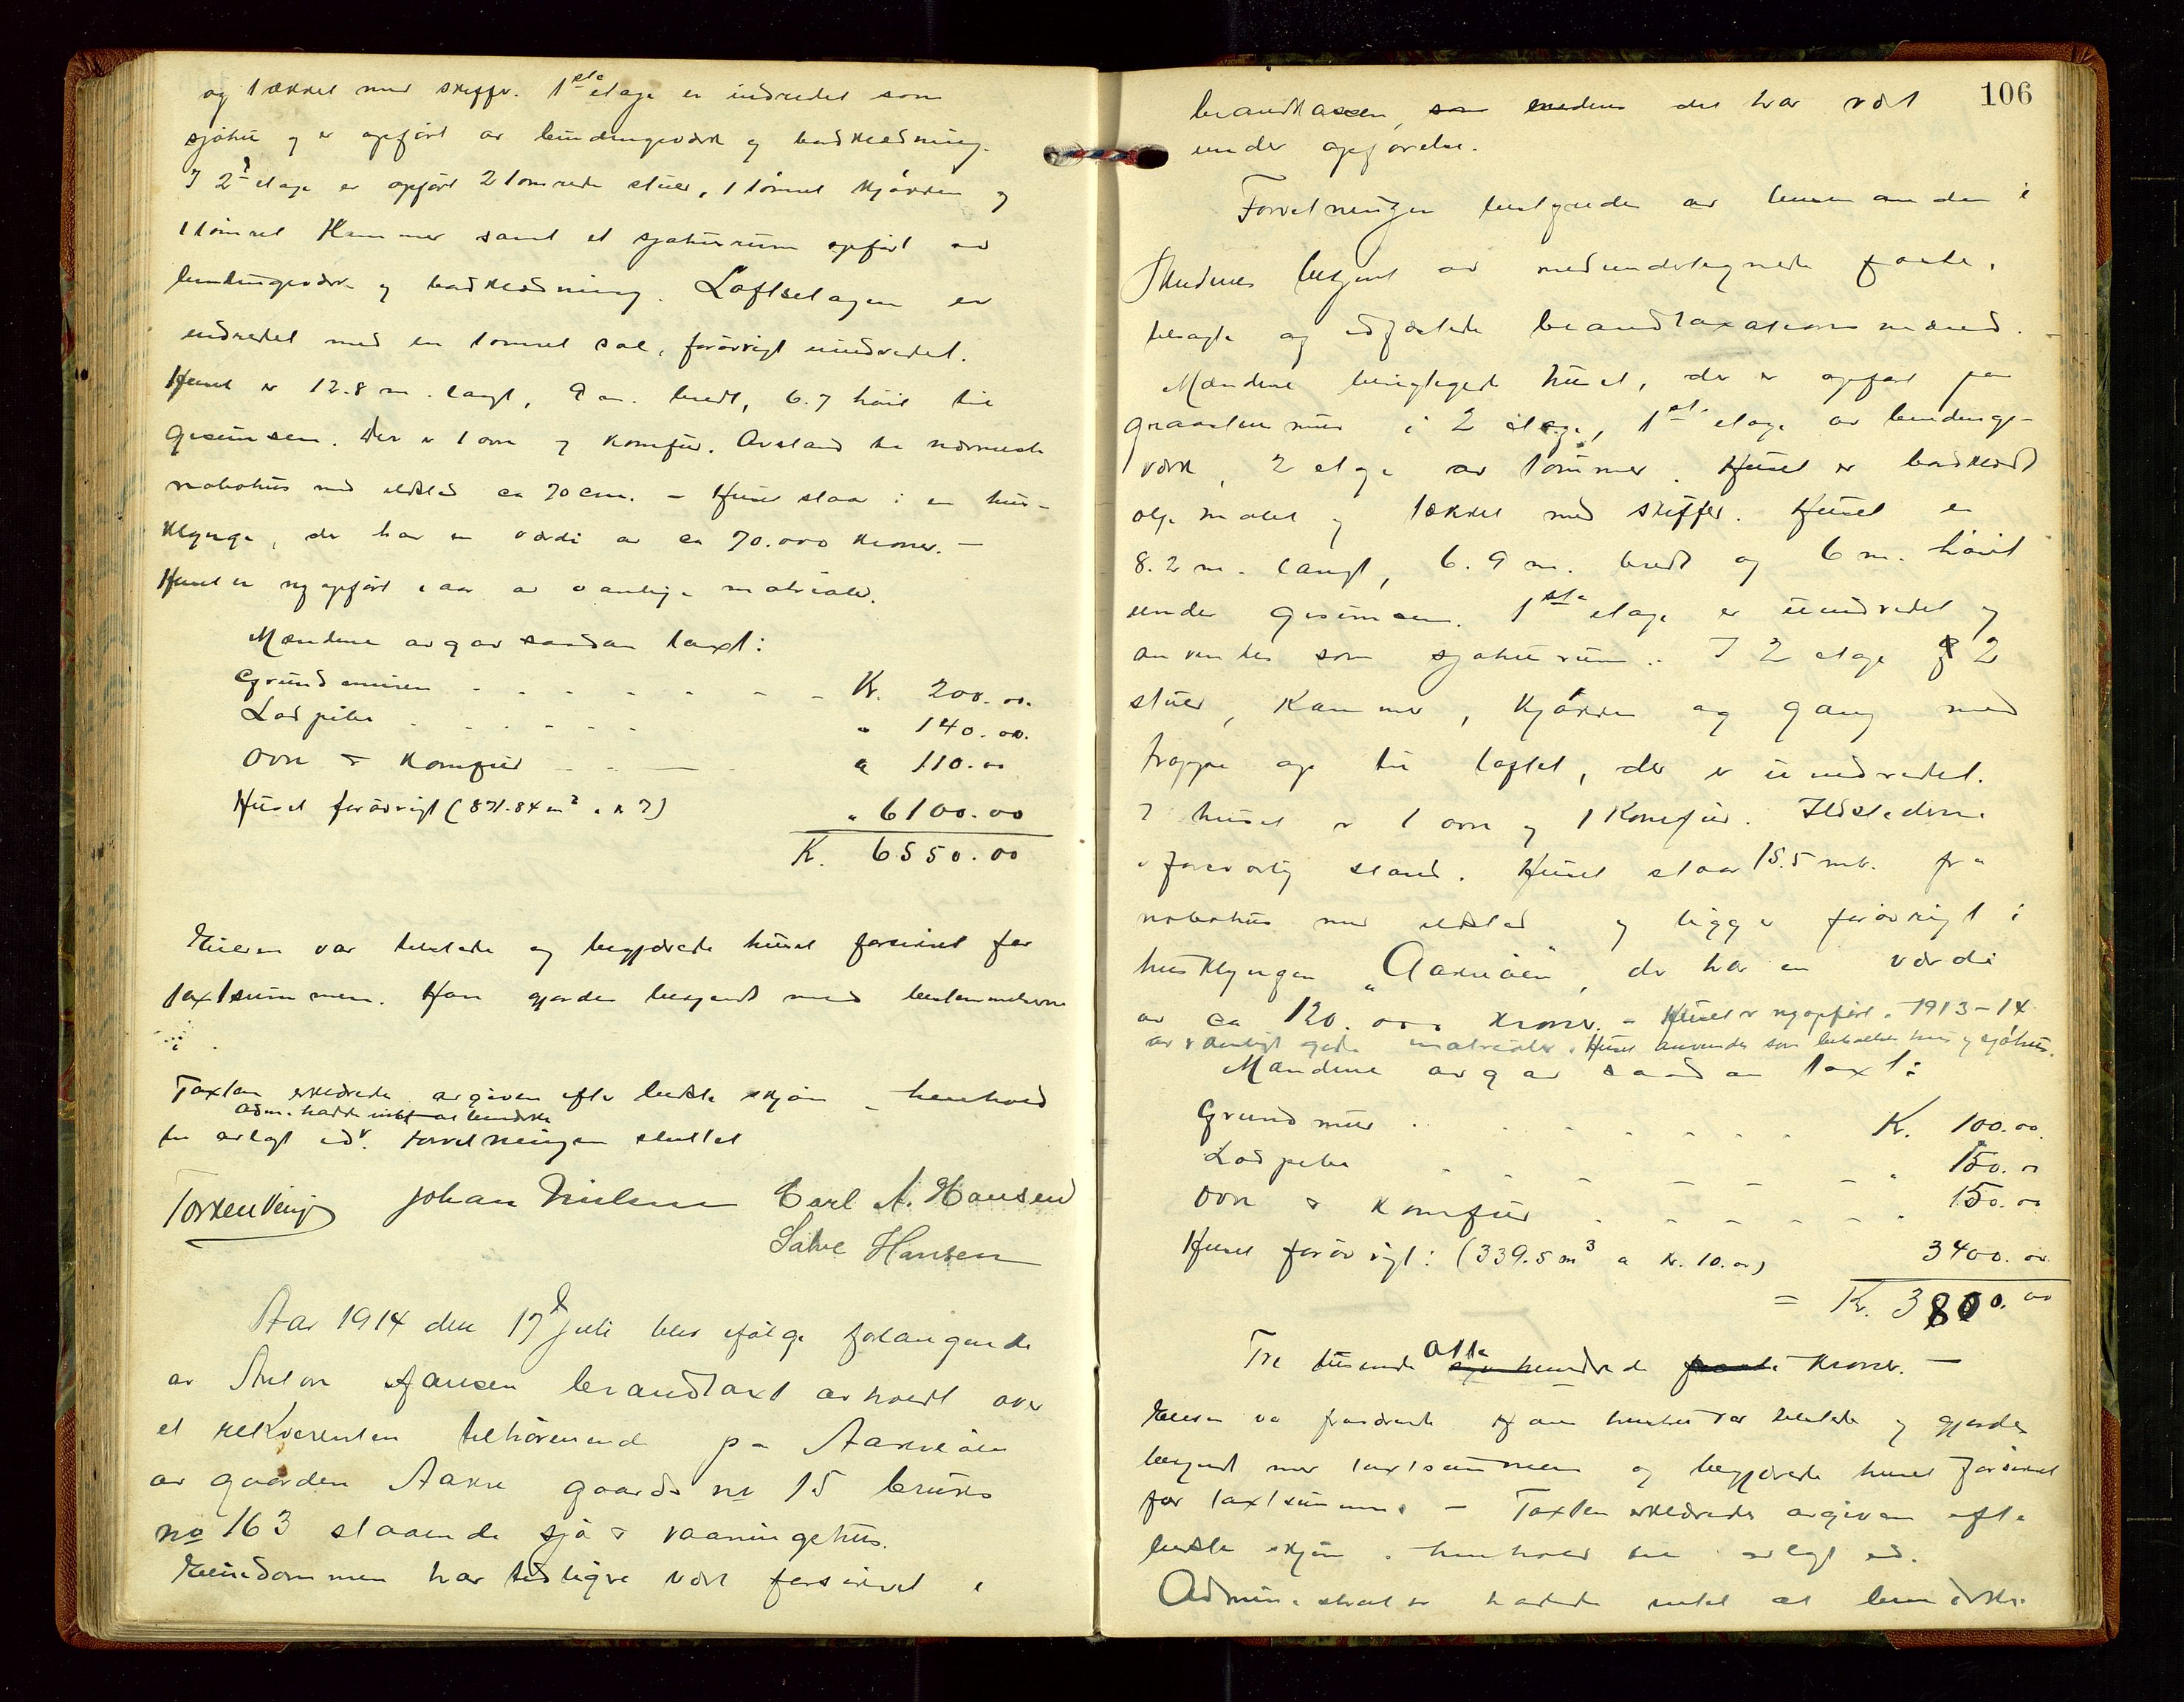 og tækket med skiffer. 1ste etage er indredet som
sjøhus og er opført av bindingsværk og bordklædning.
I 2d etage er opført 2 tømrede stuer, 1 tømret kjøkken og
1 tømret Kammer samt et sjøhusrum opført av
bindingsværk og bordklædning. Loftsetagen er
indredet med en tømret sal, forøvrigt uindredet.
Huset er 12.8 m. langt, 9 m. bredt, 6.7 høit til
gesimsen. Der er 1 ovn og komfur. Avstand til nærmeste
nabohus med ildsted ca 70 cm. - Huset staar i en hus-
klynge, der har en værdi av ca 70.000 kroner. -
Huset er nyopført i aar av vanlige materialer.
Mændene avgav saadan taxt:
Grundmuren - - - - - - - Kr. 200.00.
Ladpibe - - - - - - " 140.00.
Ovn & Komfur - - - - " 110.00
Huset forøvrigt (871.84 m² a k 7) " 6100.00
Kr. 6550.00
Eieren var tilstede og begjærede huset forsikret for
taxtsummen. Han gjordes bekjendt med bestemmelserne
Taxten erklæredes avgiven efter bedste skjøn i henhold
Adm. hadde intet at bemærke
til avlagt ed. Forretningen sluttet
Torkel Veng Johan Nielsen Carl A. Hansen
Salve Hansen
Aar 1914 den 17d Juli blev ifølge forlangende
av Anton Hansen brandtaxt avholdt over
et rekvirenten tilhørende paa Aakreøen
av gaarden Aakre gaards no 15 bruks
no 163 staaende sjø & vaaningshus.
Eiendommen har tidligere vært forsikret i
106
brandkassen, som medens det har vært
under opførelse.
Forretningen bestyredes av lensmanden i
Skudenes betjent av medundertegnede foste,
tilsagte og edfæstede brandtaxationsmænd. -
Mændene besigtigede huset, der er opført paa
graastensmur i 2 etage, 1ste etage av bindings-
værk, 2 etage av tømmer. Huset er bordklædt
oljemalet og tækket med skiffer. Huset er
8.2 m. langt, 6.9 m. bredt og 6 m. høit
under gesimsen. 1ste etage er uindredet og
anvendes som sjøhusrum. I 2 etage er 2
stuer, Kammer, Kjøkken og gang med
trappe op til loftet, der er uindredet.
I huset er 1 ovn og 1 Komfur. Ildstederne
i forsvarlig stand. Huset staar 15.5 mtr. fra
nabohus med ildsted og ligger forøvrigt i
husklyngen "Aakreøen", der har en værdi
av ca 120.000 kroner. - Huset er nyopført i 1913-14
av vanligt gode materialer. Huset anvendes som beboelseshus og sjøhus.
Mændene avgav saadan taxt:
Grundmur - - - - - - - Kr. 100.00.
Ladpibe - - - - - - - " 150.00
Ovn & Komfur - - - - - - " 150.00
Huset forøvrigt: (339.5 m³ a Kr. 10.00) 3400.00
= Kr. 3800.00
Tre tusinde otte hundrede kroner. -
Eieren var fraværende. Hans hustru var tilstede og gjordes
bekjendt med taxtsummen og begjærede huset forsikret
for taxtsummen. - Taxten erklæredes avgiven efter
bedste skjøn i henhold til avlagt ed.
Administrator havde intet at bemærke.